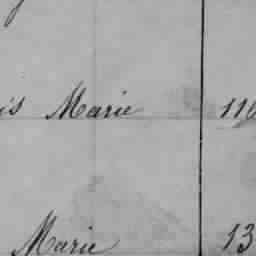 is Marie 116
Marie 13